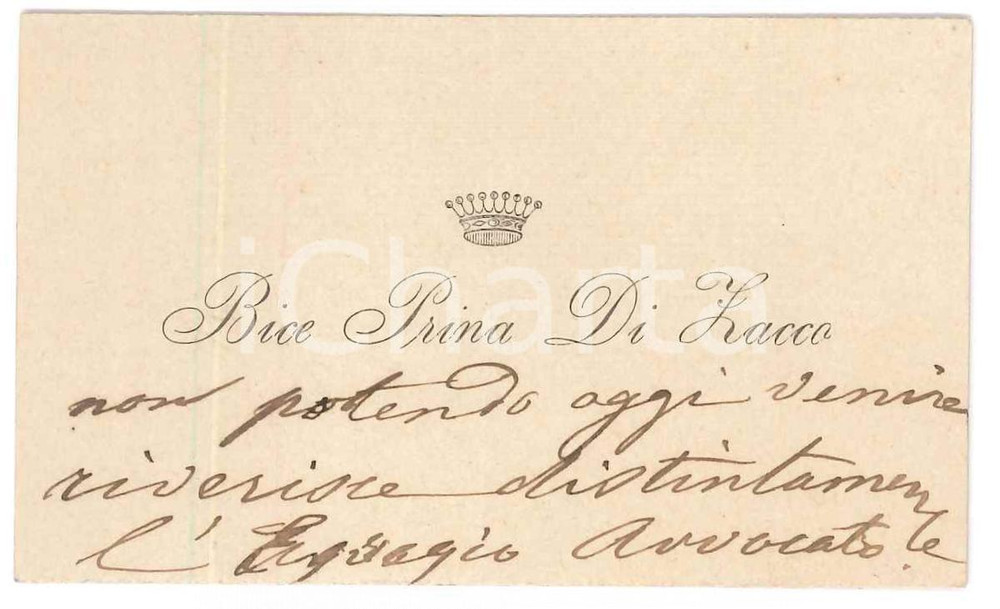 iCharta
Bice Prina Di Zacco
non potendo oggi venire
riverisce distintamente
l'Egregio Avvocato.